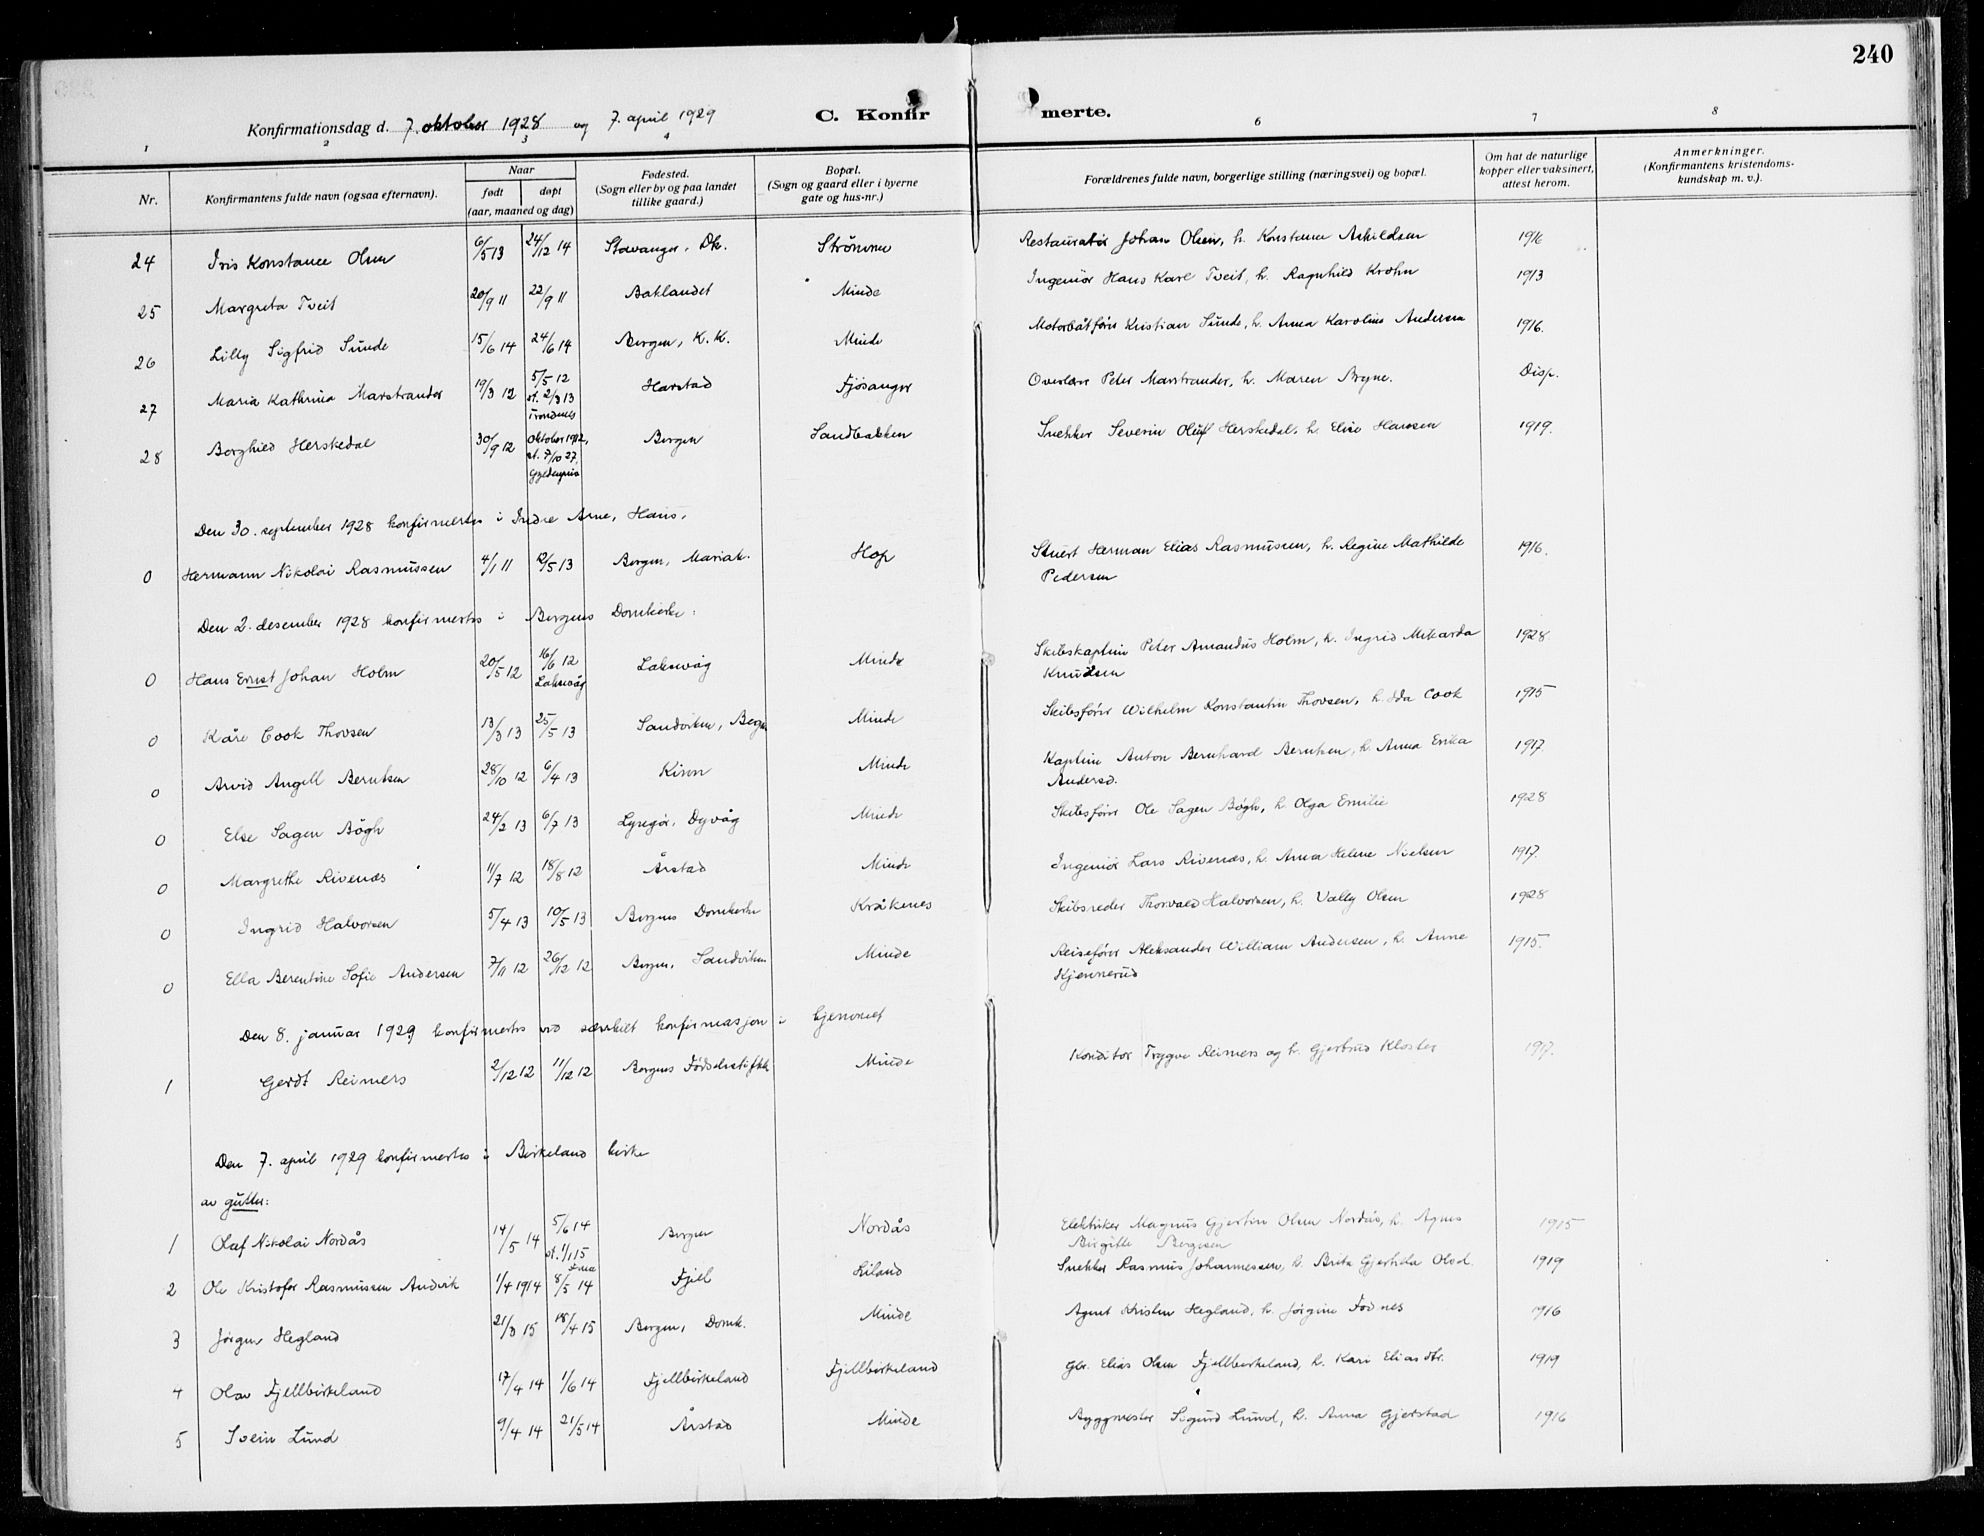 240
Konfirmationsdag d. 7. oktober 1928 og 7. april 1929 C. Konfirmerte.
1 2 3 4 6 7 8
Nr. Konfirmantens fulde navn (ogsaa efternavn). Naar født døpt (aar, maaned og dag) Fødested. (Sogn eller by og paa landet tillike gaard.) Bopæl. (Sogn og gaard eller i byerne gate og hus-nr.) Forældrenes fulde navn, borgerlige stilling (næringsvei) og bopæl. Om hat de naturlige kopper eller vaksinert, attest herom. Anmerkninger. (Konfirmantens kristendoms-kundskap m. v.).
24 Iris Konstance Olsen 6/5 13 24/12 14 Stavanger, Dk. Strömme Restauratör Johan Olsen, h. Konstance Askildsen 1916
25 Margreta Tveit 20/9 11 22/9 11 Baklandet Minde Ingeniör Hans Karl Tveit, h. Ragnhild Krohn 1913
26 Lilly Sigfrid Sunde 15/6 14 24/6 14 Bergen, K.K. Minde Motorbåtförer Kristian Sunde, h. Anna Karoline Andersen 1916.
27 Maria Kathrina Marstrander 19/3 12 5/5 12 st. 2/3 13 Trondenes Harstad Fjösanger Overlærer Peter Marstrander, h. Maren Bryne. Disp.
28 Borghild Herskedal 30/9 12 Oktober 1912, st. 7/10 27. Bergen Sandbakken Snekker Severin Oluf Herskedal, h. Elise Hansen 1919.
Den 30. september 1928 konfirmertes i Indre Arne, Haus,
0 Hermann Nikolai Rasmussen 4/1 11 12/5 13 Bergen, Mariak. Hop Stuert Herman Elias Rasmussen, h. Regine Mathilde Pedersen 1916.
Den 2. desember 1928 konfirmertes i Bergens Domkirke:
0 Hans Ernst Johan Holm 20/5 12 16/6 12 Laksevåg Laksevåg Minde Skibskaptein Peter Amandus Holm, h. Ingrid Mikarda Knudsen 1928
0 Kåre Cook Thovsen 13/3 13 25/5 13 Sandviken, Bergen Minde Skibsförer Wilhelm Konstantin Thovsen, h. Ida Cook 1915
0 Arvid Angell Berntsen 28/10 12 6/4 13 Kinn Minde Kaptein Anton Bernhard Berntsen, h. Anna Erika Andersd. 1917.
0 Else Sagen Bögh 24/2 13 6/7 13 Lyngör, Dyvåg Minde Skibsförer Ole Sagen Bögh, h. Olga Emilie 1928
0 Margrethe Rivenæs 11/7 12 18/8 12 Årstad Minde Ingeniör Lars Rivenæs, h. Anna Helene Nielsen 1917.
0 Ingrid Halvorsen 5/4 13 10/5 13 Bergens Domkirke Kråkenes Skibsreder Thorvald Halvorsen, h. Vally Olsen 1928
0 Ella Berentine Sofie Andersen 7/11 12 26/12 12 Bergen, Sandviken Minde Reiseförer Aleksander William Andersen, h. Anne Kjennerud 1915.
Den 8. januar 1929 konfirmertes ved særskilt konfirmasjon i hjemmet
1 Gerdt Reimers 2/12 12 11/12 12 Bergens Födselsstiftelse Minde Konditor Trygve Reimers og h. Gjertrud Kloster 1917.
Den 7. april 1929 konfirmertes i Birkeland kirke
av gutter:
1 Olaf Nikolai Nordås 14/5 14 5/6 14 st. 1/1 15 Bergen Nordås Elektriker Magnus Gjertin Olsen Nordås, h. Agnes Birgitte Bergesen 1915
2 Ole Kristofer Rasmussen Andvik 1/4 1914 8/5 14 Fjell Liland Snekker Rasmus Johannessen, h. Brita Gjertine Olsd. 1919
3 Jörgen Hegland 21/3 15 18/4 15 Bergen, Domk. Minde Agent Kristen Hegland, h. Jörgine Fosnes 1916
4 Olav Fjellbirkeland 17/4 14 1/6 14 Fjellbirkeland Fjellbirkeland Gbr. Elias Olsen Fjellbirkeland, h. Kari Eliasdtr. 1919
5 Svein Lund 9/4 14 21/5 14 Årstad Minde Byggmester Sigurd Lund, h. Anna Gjerstad 1916